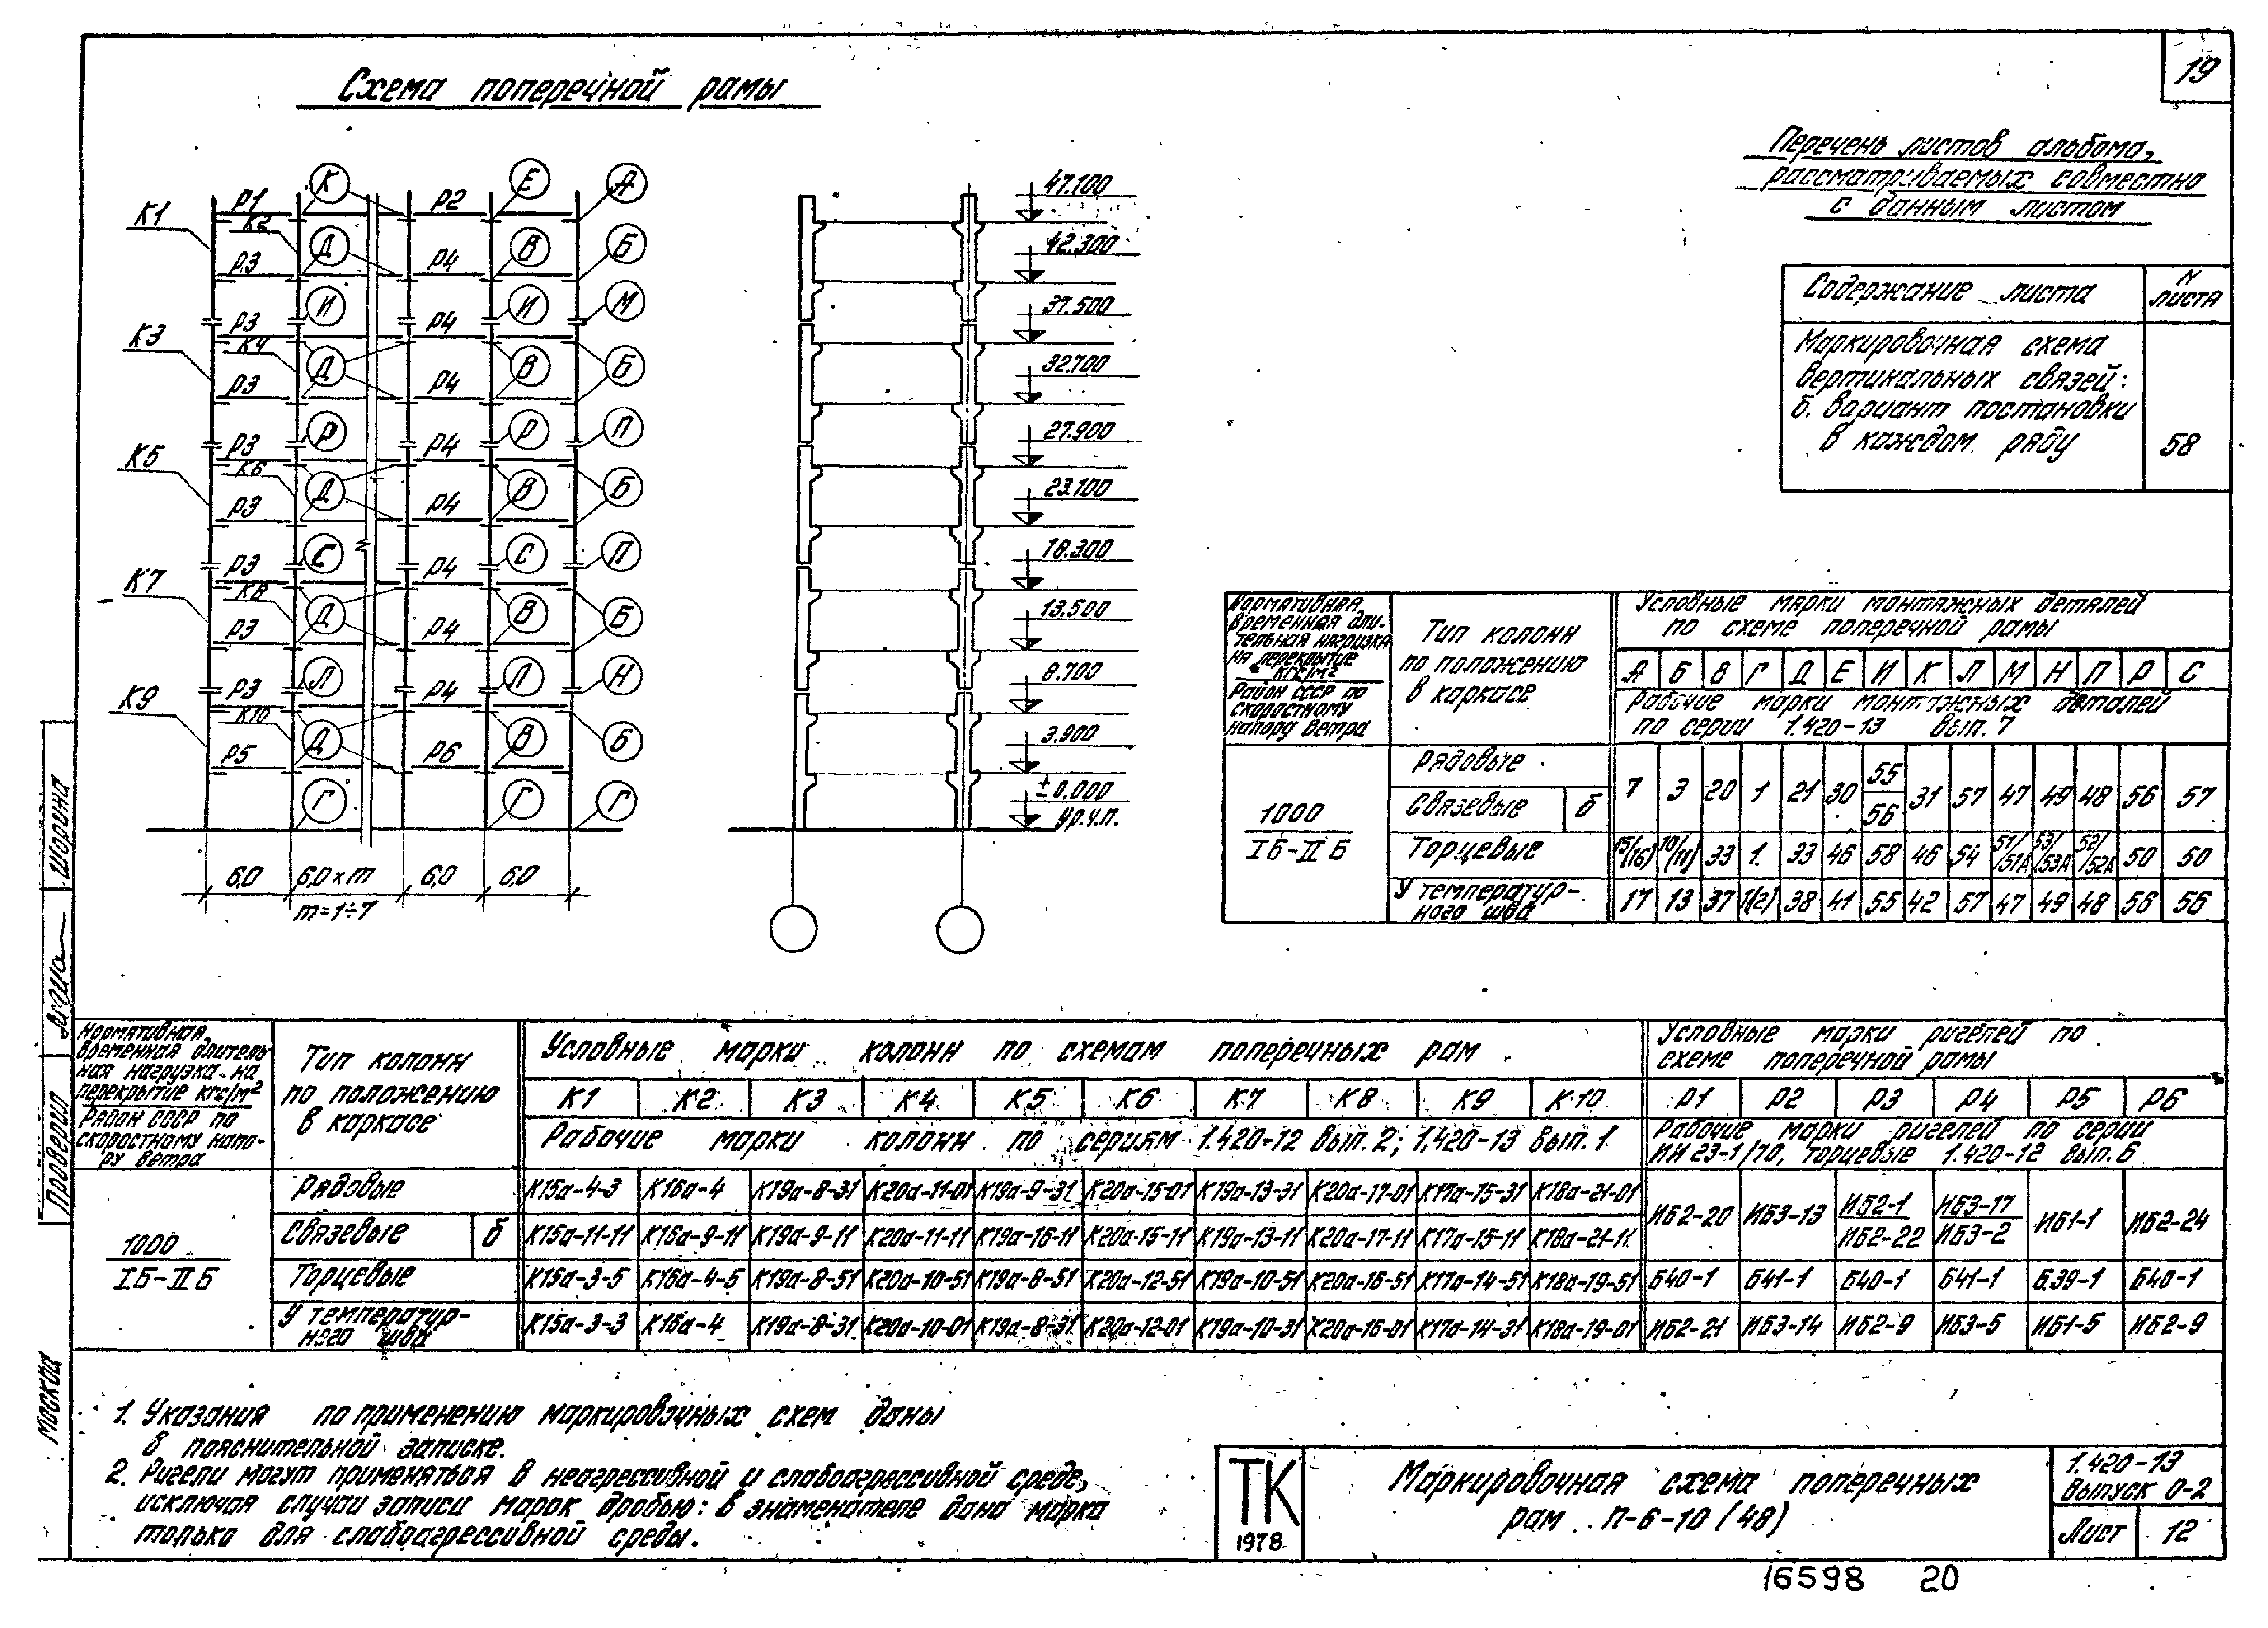 19
Схема поперечной рамы
Перечень листов альбома,
рассматриваемых совместно
с данным листом
Содержание листа
N листа
Маркировочная схема
вертикальных связей:
б. вариант постановки
в каждом ряду
58
К1
К3
К5
К7
К9
Р1 К Р2 Е А
К2
Р3 Д Р4 В Б
И И М
Р3 Р4
К4
Р3 Д Р4 В Б
Р Р П
Р3 Р4
К6
Р3 Д Р4 В Б
С С П
Р3 Р4
К8
Р3 Д Р4 В Б
Л Л Н
Р3 Р4
К10
Р5 Д Р6 В Б
Г Г Г
6,0 6,0×m 6,0 6,0
m=1÷7
47.100
42.300
37.500
32.700
27.900
23.100
18.300
13.500
8.700
3.900
±0.000
Ур.ч.п.
Нормативная
временная дли-
тельная нагрузка
на перекрытие
кгс/м²
Район СССР по
скоростному
напору ветра
Тип колонн
по положению
в каркасе
Условные марки монтажных деталей
по схеме поперечной рамы
А Б В Г Д Е И К Л М Н П Р С
Рабочие марки монтажных деталей
по серии 1.420-13 вып. 7
1000
IБ-IIБ
Рядовые
Связевые б
7 3 20 1 21 30 55/56 31 57 47 49 48 56 57
Торцевые 15/(16) 10/(11) 33 1. 33 46 58 46 54 51/51А 53/53А 52/52А 50 50
У температур-
ного шва
17 13 37 1(2) 38 41 55 42 57 47 49 48 56 56
Нормативная
временная длитель
ная нагрузка на
перекрытие кгс/м²
Район СССР по
скоростному напо-
ру ветра
Тип колонн
по положению
в каркасе
Условные марки колонн по схемам поперечных рам
К1 К2 К3 К4 К5 К6 К7 К8 К9 К10
Рабочие марки колонн по сериям 1.420-12 вып. 2; 1.420-13 вып. 1
Условные марки ригелей по
схеме поперечной рамы
Р1 Р2 Р3 Р4 Р5 Р6
Рабочие марки ригелей по серии
ИИ 23-1/70, торцевые 1.420-12 вып. 6
1000
IБ-IIБ
Рядовые К15а-4-3 К16а-4 К19а-8-31 К20а-11-01 К19а-9-31 К20а-15-01 К19а-13-31 К20а-17-01 К17а-15-31 К18а-21-01
Связевые б К15а-11-11 К16а-9-11 К19а-9-11 К20а-11-11 К19а-16-11 К20а-15-11 К19а-13-11 К20а-17-11 К17а-15-11 К18а-21-11
ИБ2-20 ИБ3-13 ИБ2-1/ИБ2-22 ИБ3-17/ИБ3-2 ИБ1-1 ИБ2-24
Торцевые К15а-3-5 К16а-4-5 К19а-8-51 К20а-10-51 К19а-8-51 К20а-12-51 К19а-10-51 К20а-16-51 К17а-14-51 К18а-19-51 Б40-1 Б41-1 Б40-1 Б41-1 Б.39-1 Б40-1
У температур-
ного шва
К15а-3-3 К16а-4 К19а-8-31 К20а-10-01 К19а-8-31 К20а-12-01 К19а-10-31 К20а-16-01 К17а-14-31 К18а-19-01 ИБ2-21 ИБ3-14 ИБ2-9 ИБ3-5 ИБ1-5 ИБ2-9
1. Указания по применению маркировочных схем даны
в пояснительной записке.
2. Ригели могут применяться в неагрессивной и слабоагрессивной среде,
исключая случаи записи марок дробью: в знаменателе дана марка
только для слабоагрессивной среды.
ТК
1978
Маркировочная схема поперечных
рам П-6-10 (48)
1.420-13
выпуск 0-2
Лист 12
16598 20
Шорина
Проверил
Москва